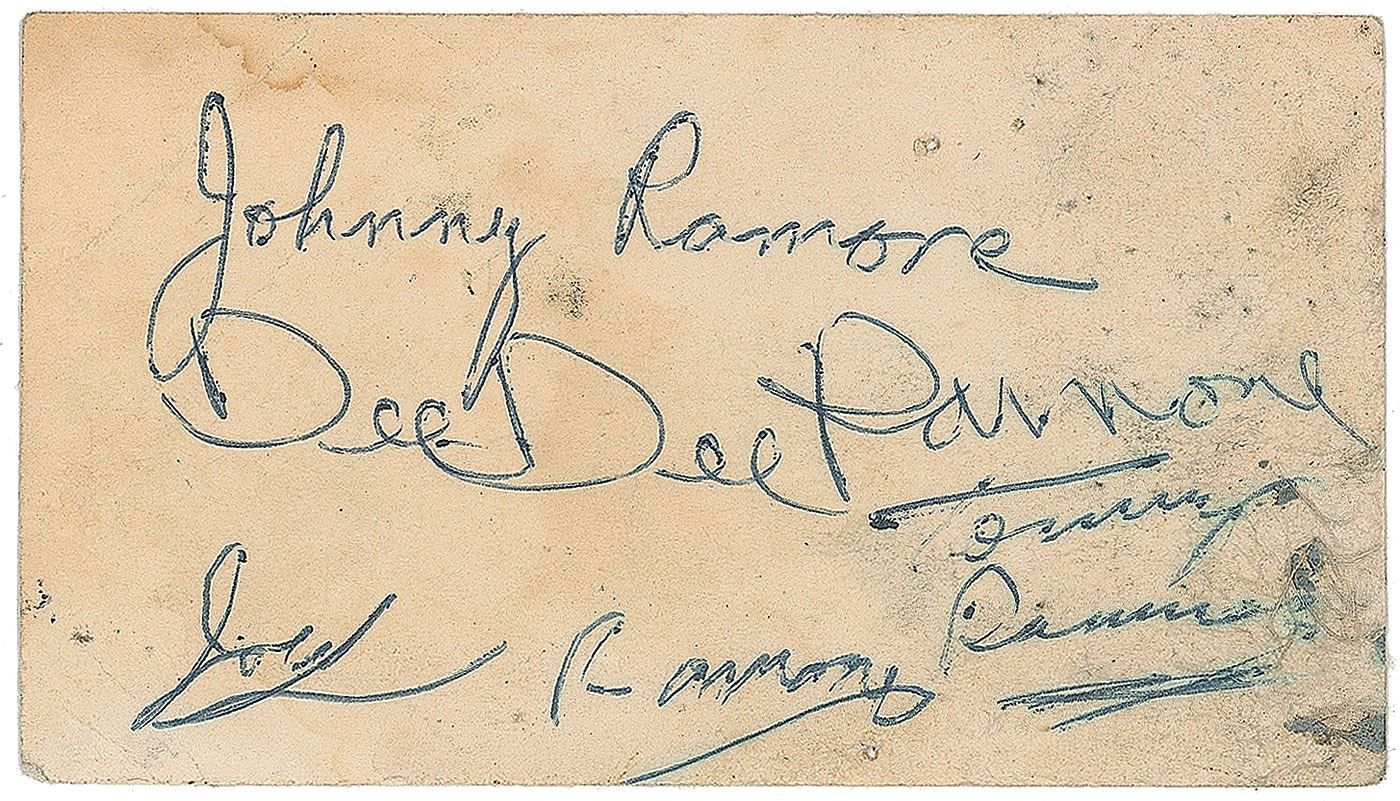 Johnny Ramone
Dee Dee Ramone
Tommy
Ramone
Joey Ramone